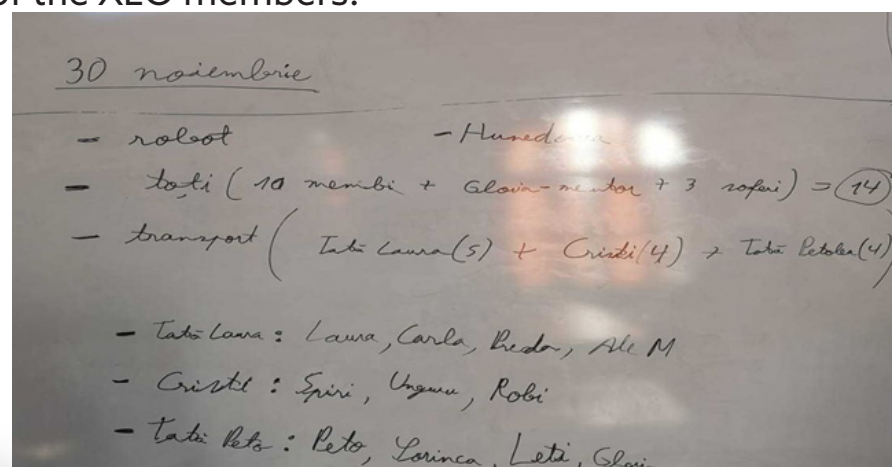 of the XEO members.
30 noiembrie
- robot - Hunedoara
- toți ( 10 membi + Gloria-mentor + 3 șoferi) = 14
- transport ( Tata Laura(5) + Cristi(4) + Tata Petolea(4)
- Tata Laura : Laura, Carla, Preda, Ale M
- Cristi : Spiri, Unguru, Robi
- Tata Peto : Peto, Lorinca, Leti,